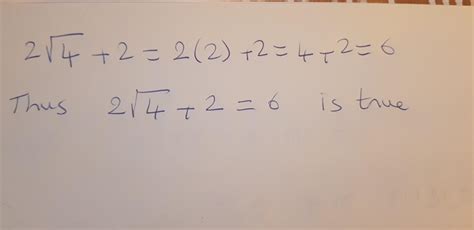 2√4 + 2 = 2(2) + 2 = 4 + 2 = 6
Thus 2√4 + 2 = 6 is true